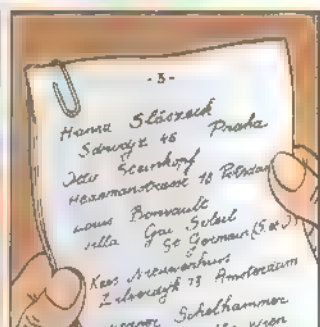 - 3 -
Hanna Slászeck
46 Praha
Otto Steinkopf
Hermannstrasse 18 Potsdam
Louis Bonvault
Villa Gai Soleil
St Germain (S. et
Kees Nieuwenhuis
73 Amsterdam
Schelhammer
Wien